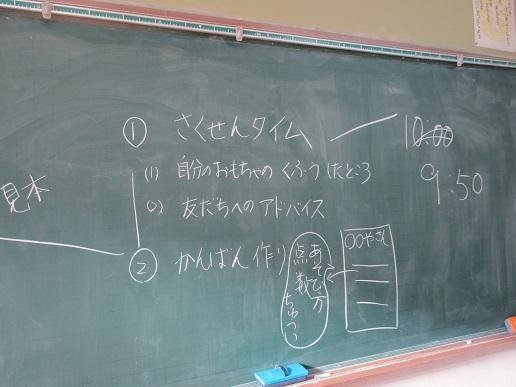 ① さくせんタイム
10:00
9:50
(1) 自分のおもちゃの くふうしたところ
(2) 友だちへのアドバイス
見本
② かんばん作り
あそび方
点数
〇〇やさん